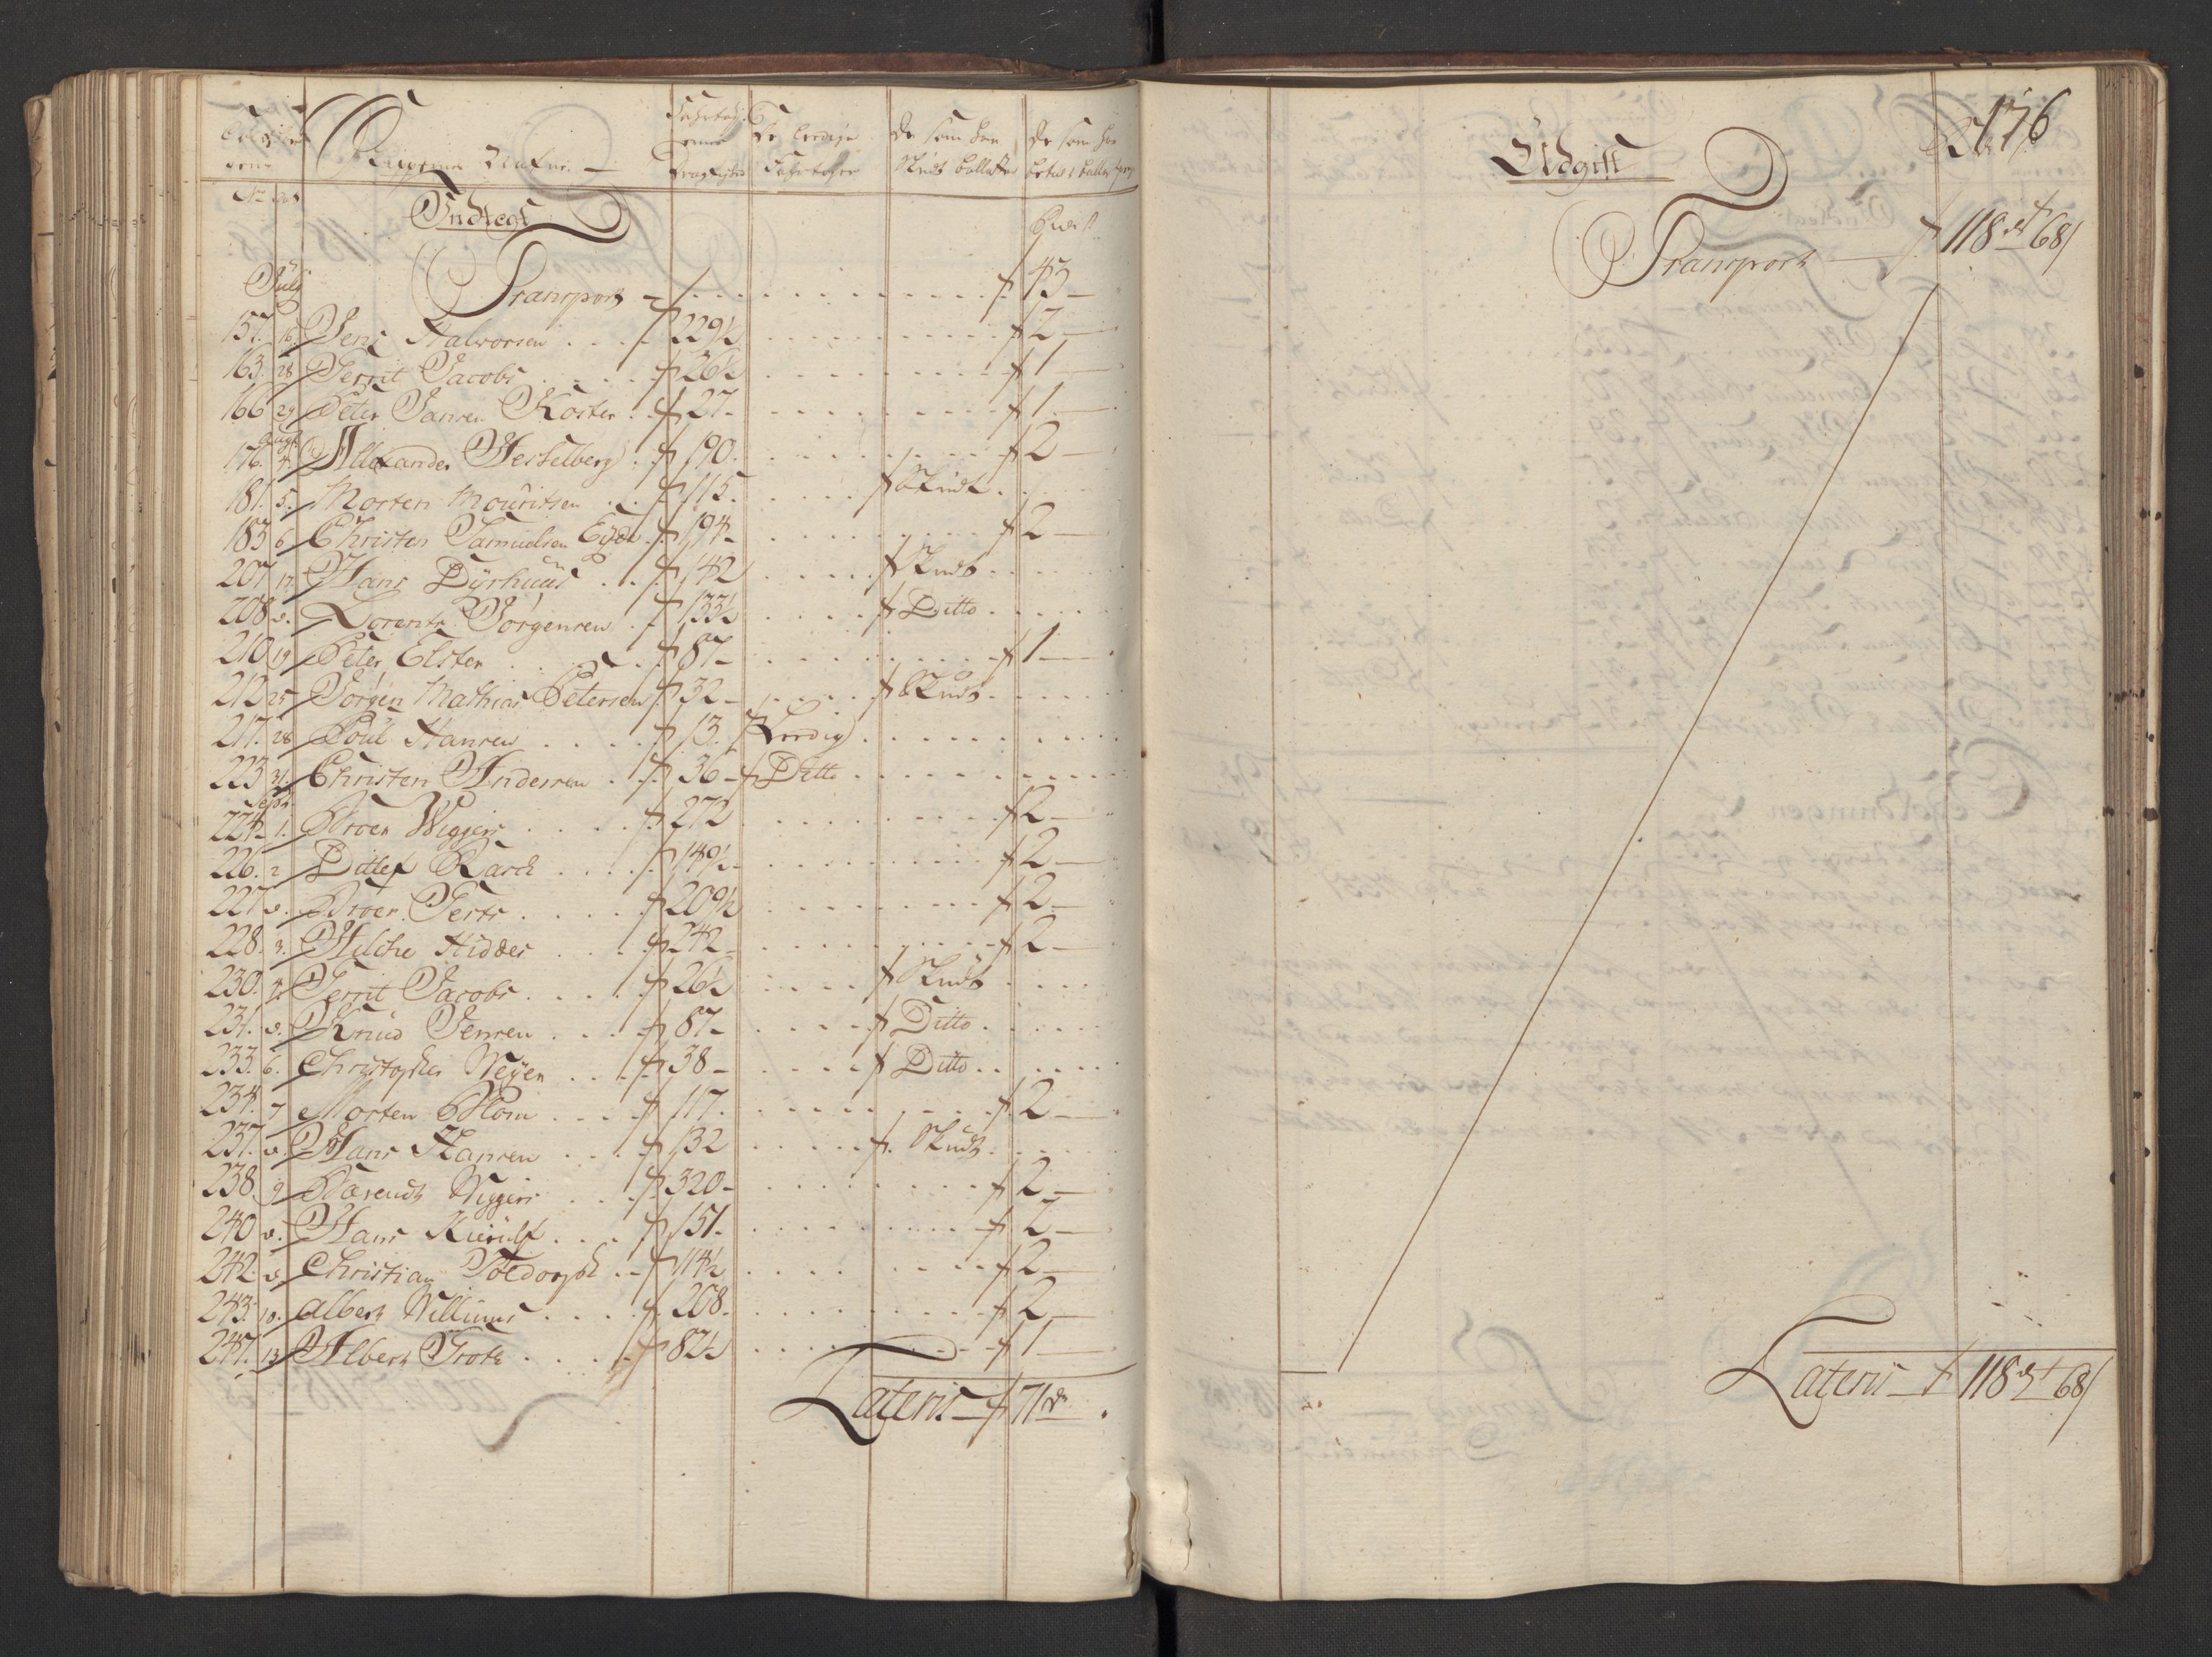 De som har
De som har
Skudt ballast
Indtegt
July
Transport - 43 -
157. 16. Jens Halvorsen 229½ 2 -
163. 28 Gerrit Jacobs 26½ 1 -
166 29 Peter Jansen Koster 27 - 1 -
Augt
176. 4. Allexander Hesselberg 190. 2 -
181. 5. Morten Mouritsen 115. Skudt
183 6 Christen Samuelsen Eyde 194 - 2 -
207 17. Hans Dyrhuus 142 Skudt
208 d. Lorentz Jörgensen 133½ Ditto
210 19 Peter Elster 87 - 1 -
212 25 Jörgen Mathias Petersen 32 - Skudt
217. 28 Poul Hansen 13. Lerdig
223 31. Christen Andersen 36 - Ditto
Septr
224. 1. Broer Wiggers 272 2 -
226. 2 Dittlef Rasch 149½ - 2 -
227 d. Broer Gerts 209½ 2 -
228. 3. Hilche Hiddes 242 - 2 -
230. Gerrit Jacobs 26½ Skudt
231. d. Knud Jensen 87 - Ditto
233. 6. Christopher Meyer 38 - Ditto
234. 7 Morten Blom 117. 2 -
237. d. Hans Hansen 132 Skudt
238. 9 Barendt Wiggers 320 - 2 -
240 d. Hans Kierulf 151. 2 -
242. d. Christian Toldorph 114½ 2 -
243. 10. Albert Willums 208. 2 -
247. 13 Albert Grote 82½ 1 -
Lateris 71 rd
176
Udgift
Transport - 118 rd 68
Lateris - 118 rd 68